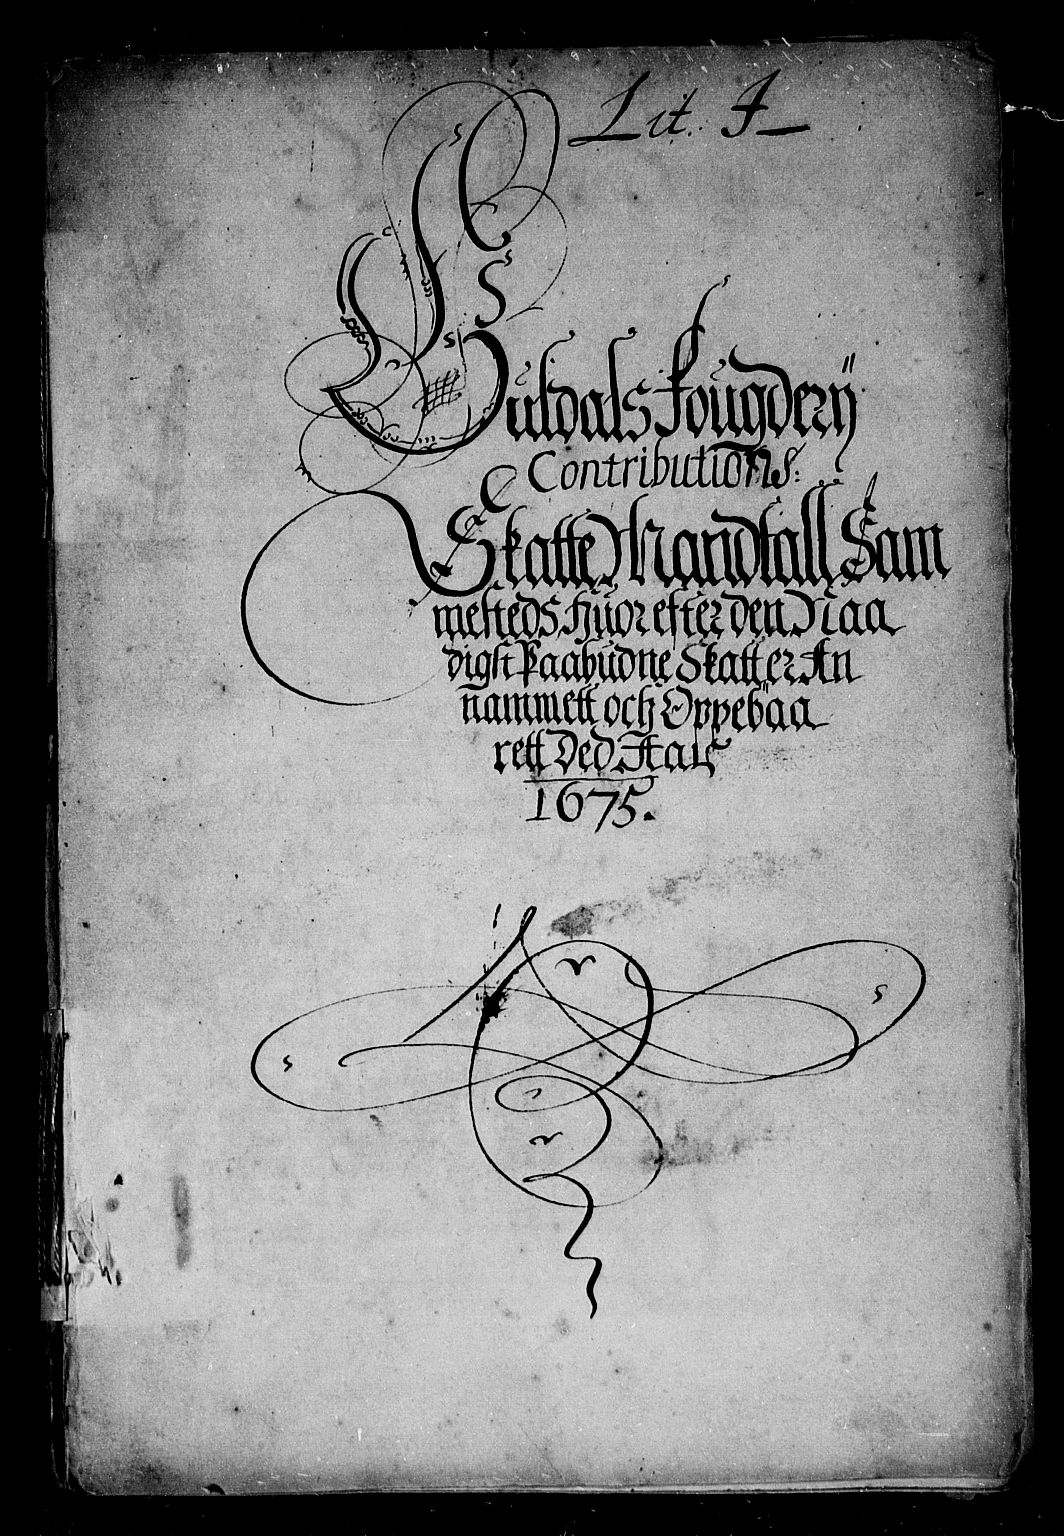 Lit. A
Guldals Fougderij
Contributions
Skatte Mandtall Sam
mesteds huor efter den Naa
digst Paabudne Skatter An
nammett och Oppebaa
rett Ded Aar
1675.